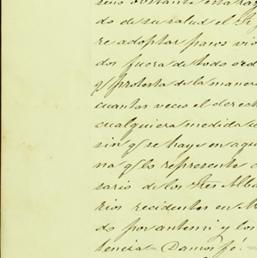 do de su salud el Sr
re adoptar pasos vio
dos fuera de todo ord
y protesta de la maner
cuantas veces el derech
cualquiera medida
sin q se haya en aqu
na q lo represente
sario de los Tres Alba
rios recidentes en
do por ante mi y los
tencia = Damos fé! =